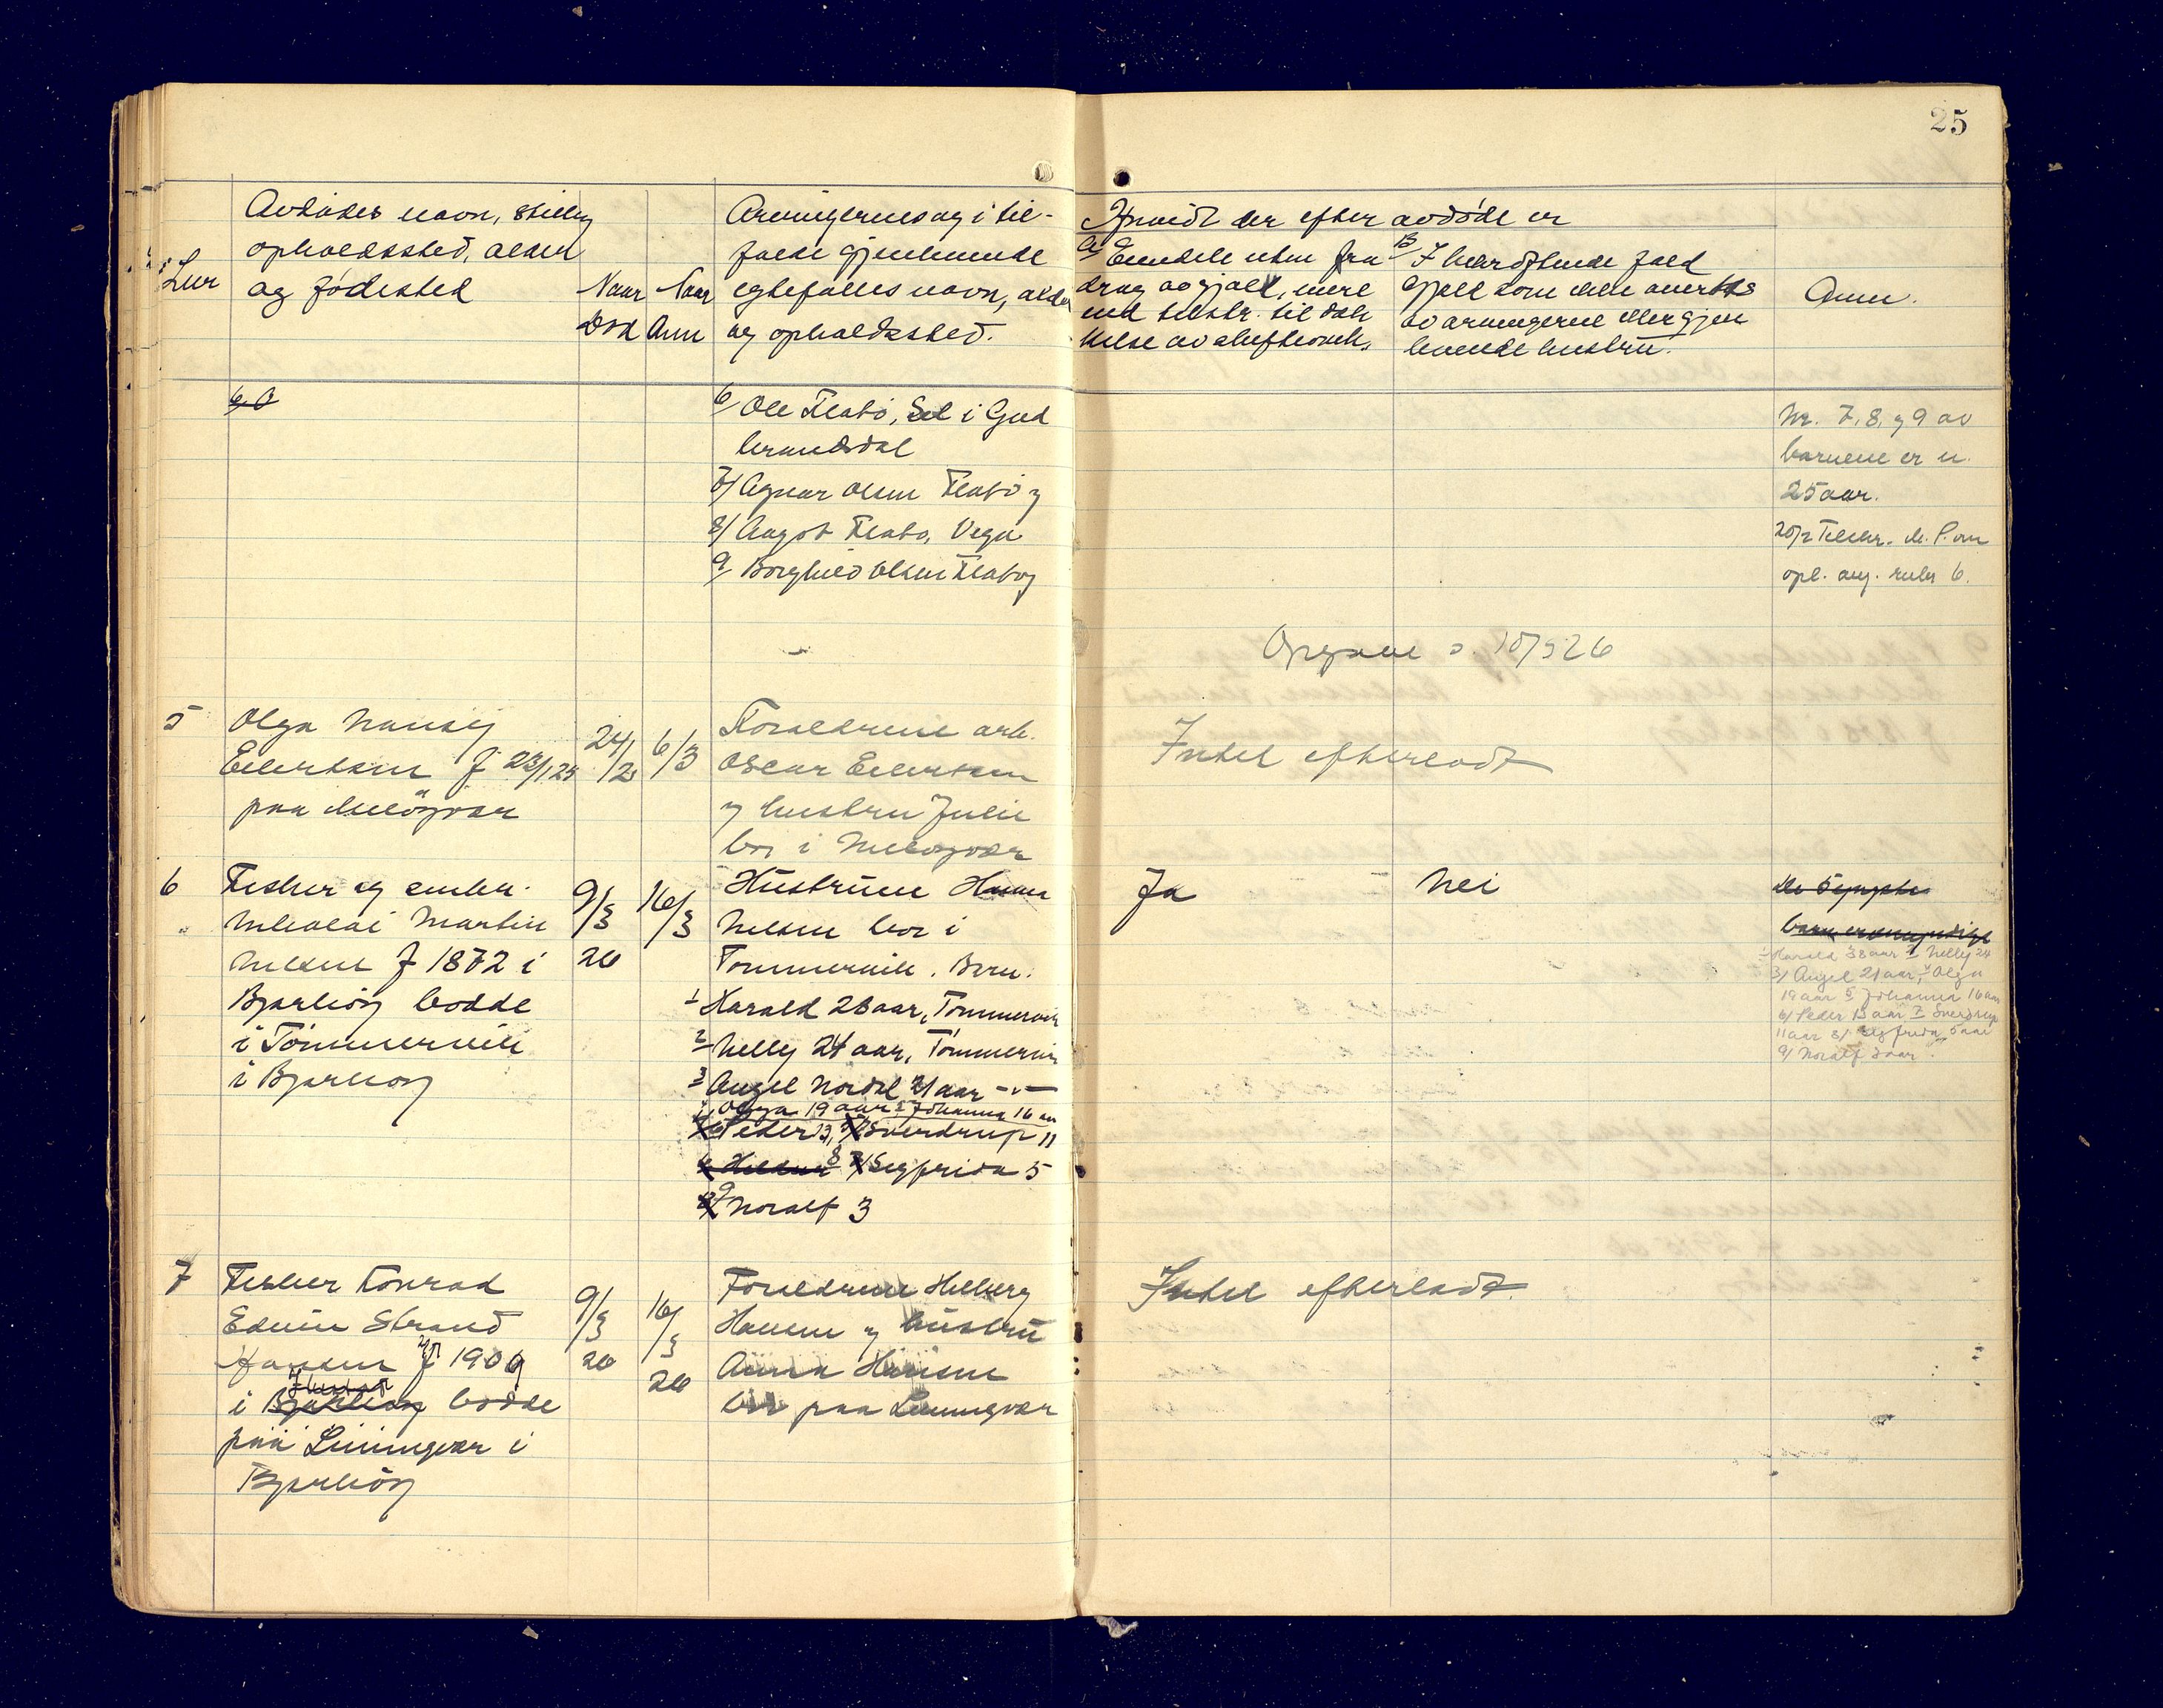 25
Avdödes navn, stilling
opholdssted, alder
og födested
Lnr
Naar
Död
Naar
Anm
Arvingernes og i til-
fælde gjenlevende
egtefælles navn, alder
og opholdssted.
Hvorvidt der efter avdöde er
a/ Eiendele uten fra
drag av gjæld, mere
end tilstr. til dæk
kelse av skifteomk.
B/ I bekræftende fald
Gjæld som ikke overtas
av arvingerne eller gjen
levende hustru.
Anm.
6/ O
6/ Ole Flatö, Sel i Gud
brandsdal
7/ Agnar Olsen Flatö og
8/ Aagot Flatö, Vega
9/ Borghild Olsen Flatö og
Nr. 7, 8, og 9 av
barnene er u.
25 aar.
opl. ang. rubr 6.
Opgave s. 10/5 26
5
Olga Nansy
Eilertsen f 23/1 25
paa
24/1
6/3
Forældrene arb.
Oscar Eilertsen
og hustru Julie
bor i
Intet efterladt
6
Fisker og smbr.
Nikolai Martin
Nilsen f 1872 i
Bjarköy bodde
i Tömmervik
i Bjarköy
9/3
26
16/3
Hustruen Hanna
Nilsen bor i
Tömmervik. Barn:
1 Harald 28 aar, Tömmervik
2 Nelly 24 aar, Tömmervik
3 Angel Nordal 21 aar -"-
4 Olga 19 aar 5 Johanna 16 aar
6 Peder 13, 7 Sverdrup 11
8 Sigfrida 5
9 Noralf 3
Ja
Nei
barn er umyndige
1 Harald 28 aar 2 Nelly 24
3/ Angel 21 aar, 4 Olga
19 aar 5 Johanna 16 aar
6/ Peder 13 aar 7 Sverdrup
11 aar 8/ Sigfrida 5 aar
9/ Noralf 3 aar
7
Fisker Konrad
Edvin Strand
Hansen f 1906
i Bjarköy bodde
paa Leiningvær i
Bjarköy
9/3
26
16/3
26
Forældrene Hilberg
Hansen og hustru
Anna Hansen
bor paa Leiningvær
Intet efterladt